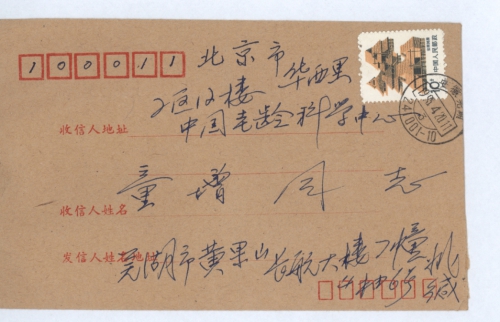 100011
北京市
华西里
2区12楼
收信人地址 中国老龄科学中心
童增 同志
收信人姓名
发信人姓名地址
芜湖市黄果山长航大楼
缄
中国人民邮政